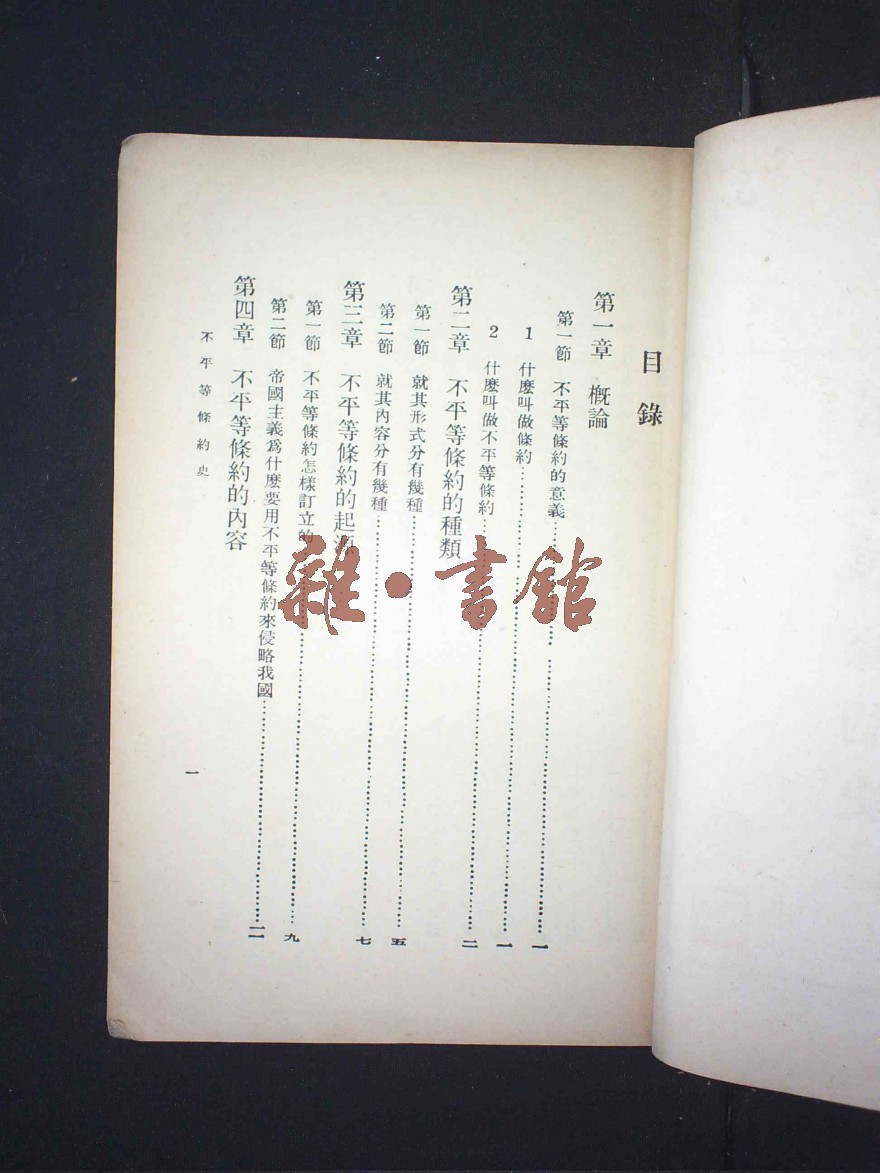 目錄
第一章 概論
第一節 不平等條約的意義……一
1 什麽叫做條約……一
2 什麽叫做不平等條約……二
第二章 不平等條約的種類
第一節 就其形式分有幾種……五
第二節 就其內容分有幾種……七
第三章 不平等條約的起源
第一節 不平等條約怎樣訂立的……九
第二節 帝國主義爲什麽要用不平等條約來侵略我國……一一
第四章 不平等條約的內容
不平等條約史
一
雜·書館